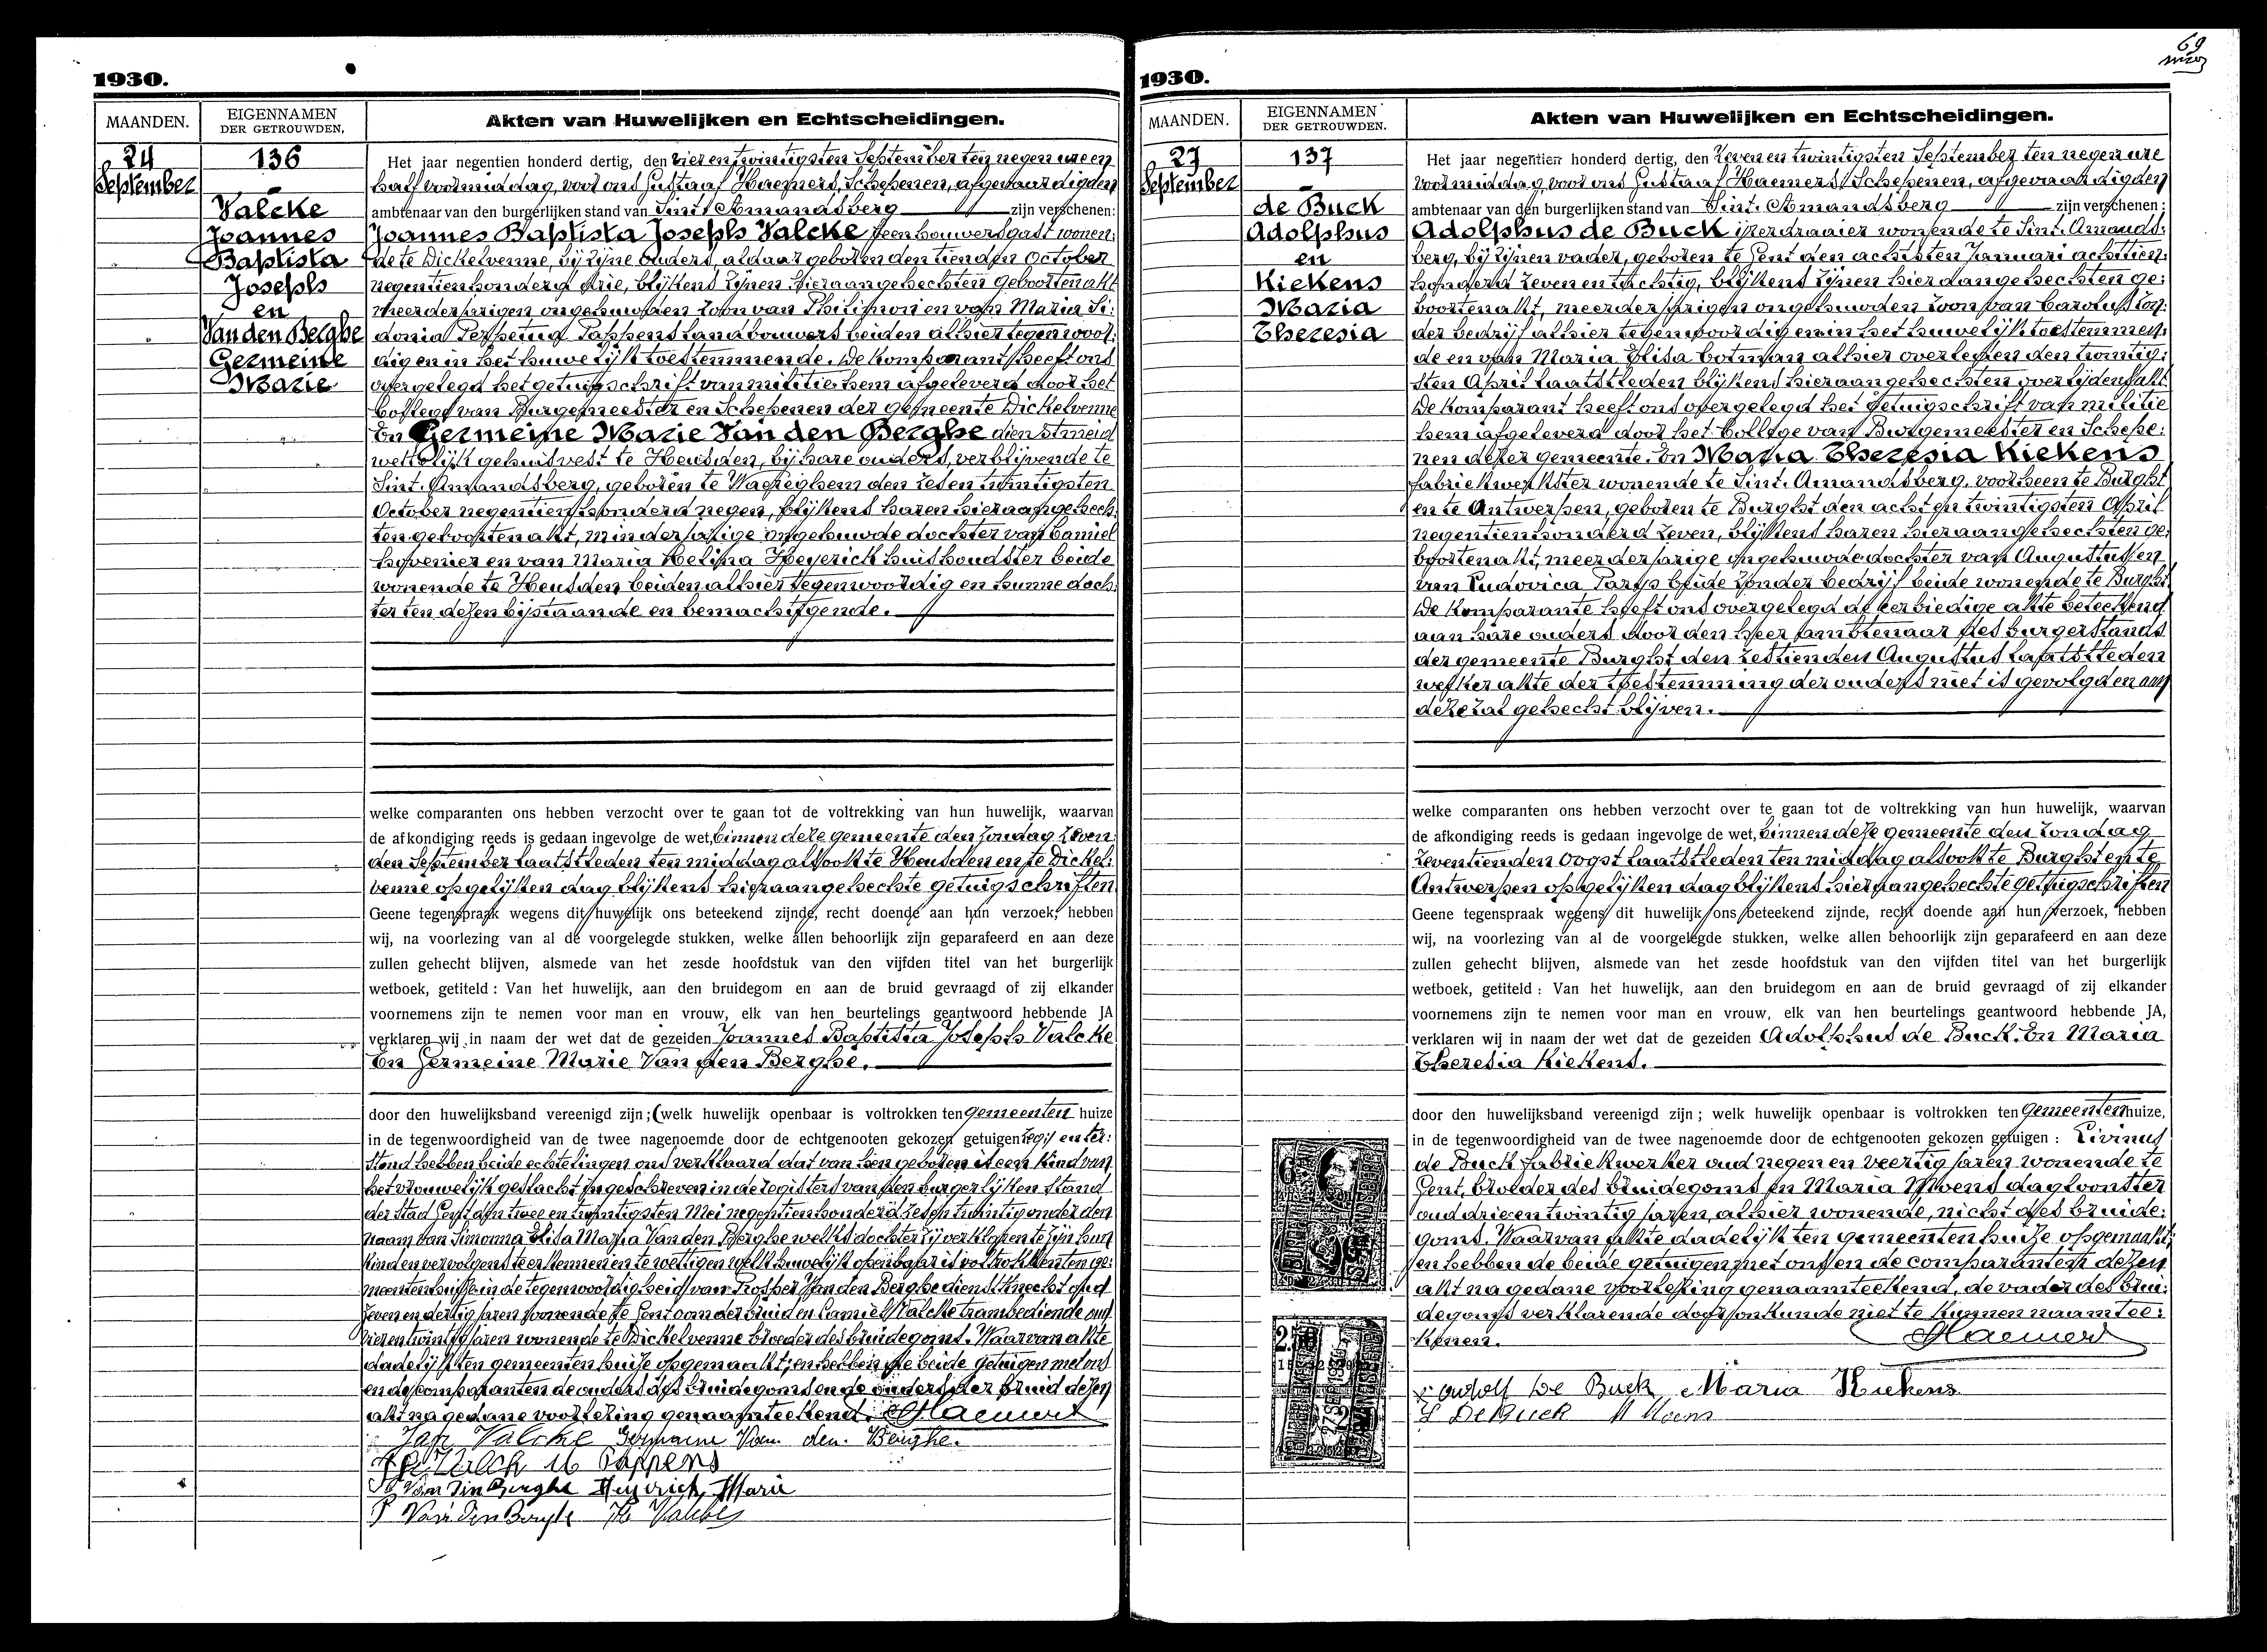 1930.
MAANDEN.
EIGENNAMEN
DER GETROUWDEN,
Akten van Huwelijken en Echtscheidingen.
24
September
136
Valcke
Joannes
Baptista
Joseph
en
Van den Berghe
Germeine
Marie
Het jaar negentien honderd dertig, den vier en twintigsten September ten negen ure en
half voormiddag, voor ons Gustaaf Haemers, Schepenen, afgevaardigden
ambtenaar van den burgerlijken stand van Sint Amandsberg zijn verschenen:
Joannes Baptista Joseph Valcke steenhouwersgast wonen:
de te Dickelvenne, bij zijne ouders, aldaar geboren den tienden October
negentienhonderd drie, blijkens zijnen hieraangehechten geboortenakt
meerderjarigen ongehuwden zoon van Philimon en van Maria Si:
donia Tappens landbouwers beiden alhier tegenwoor:
dig en in het huwelijk toestemmende. De komparant heeft ons
overgelegd het getuigschrift van militie hem afgeleverd door het
Kollege van Burgemeester en Schepenen der gemeente Dickelvenne
En Germeine Marie Van den Berghe dienstmeid
wettelijk gehuisvest te Heusden, bij hare ouders, verblijvende te
Sint. Amandsberg, geboren te Waereghem den zes en twintigsten
October negentienhonderd negen, blijkens haren hieraangehech:
ten geboortenakt, minderjarige ongehuwde dochter van Camiel
hovenier en van Maria Helina Heyerick huishoudster beide
wonende te Heusden beiden alhier tegenwoordig en hunne doch:
ter ten dezen bijstaande en bemachtigende.
welke comparanten ons hebben verzocht over te gaan tot de voltrekking van hun huwelijk, waarvan
de afkondiging reeds is gedaan ingevolge de wet, binnen deze gemeente den zondag zeven:
den September laatstleden ten middag alsook te Heusden en te Dickel:
venne op gelijken dag blijkens hieraangehechte getuigschriften
Geene tegenspraak wegens dit huwelijk ons beteekend zijnde, recht doende aan hun verzoek, hebben
wij, na voorlezing van al de voorgelegde stukken, welke allen behoorlijk zijn geparafeerd en aan deze
zullen gehecht blijven, alsmede van het zesde hoofdstuk van den vijfden titel van het burgerlijk
wetboek, getiteld : Van het huwelijk, aan den bruidegom en aan de bruid gevraagd of zij elkander
voornemens zijn te nemen voor man en vrouw, elk van hen beurtelings geantwoord hebbende JA
verklaren wij in naam der wet dat de gezeiden Joannes Baptista Joseph Valcke
En Germeine Marie Van den Berghe.
door den huwelijksband vereenigd zijn; (welk huwelijk openbaar is voltrokken ten gemeenten huize
in de tegenwoordigheid van de twee nagenoemde door de echtgenooten gekozen getuigen en ter:
stond hebben beide echtelingen ons verklaard dat van hen geboren is een kind van
het vrouwelijk geslacht ingeschreven in de registers van den burgerlijken stand
der stad Gent den twee en twintigsten Mei negentienhonderd zes en twintig onder den
naam van Simonna Elisa Maria Van den Berghe welks dochter zij verklaren te zijn hun
kind en vervolgens te erkennen en te wettigen welk huwelijk openbaar is voltrokken ten ge:
meentenhuize in de tegenwoordigheid van Prosper Van den Berghe dienstknecht oud
zeven en dertig jaren wonende te Gent oom der bruid en Camiel Valcke trambediende oud
vier en twintig jaren wonende te Dickelvenne broeder des bruidegoms. Waarvan akte
dadelijk ten gemeenten huize opgemaakt; en hebben de beide getuigen met ons
en de comparanten de ouders des bruidegoms en de ouders der bruid dezen
akt na gedane voorlezing genaamteekend. GHaemers
Valcke Germaine Van den Berghe.
Valcke M Tappens
Van den Berghe Heyerick Marie
P Van Den Berghe Valcke
69
1930.
MAANDEN.
EIGENNAMEN
DER GETROUWDEN.
Akten van Huwelijken en Echtscheidingen.
27
September
137
de Buck
Adolphus
en
Kiekens
Maria
Theresia
Het jaar negentien honderd dertig, den zeven en twintigsten September ten negen ure
voormiddag voor ons Gustaaf Haemers Schepenen, afgevaardigden
ambtenaar van den burgerlijken stand van Sint. Amandsberg zijn verschenen :
Adolphus de Buck ijzerdraaier wonende te Sint. Amands:
berg, bij zijnen vader, geboren te Gent den achtsten Januari achttien:
honderd zeven en tachtig, blijkens zijnen hieraangehechten ge:
boortenakt, meerderjarigen ongehuwden zoon van Carolus zon:
der bedrijf alhier tegenwoordig en in het huwelijk toestemmen:
de en van Maria Elisa Cotman alhier overleden den twintig:
sten April laatstleden blijkens hieraangehechten overlijdensakt
De komparant heeft ons overgelegd het getuigschrift van militie
hem afgeleverd door het Kollege van Burgemeester en Schepe:
nen dezer gemeente. En Maria Theresia Kiekens
fabriekwerkster wonende te Sint. Amandsberg, voorheen te Burght
en te Antwerpen, geboren te Burght den acht en twintigsten April
negentienhonderd zeven, blijkens haren hieraangehechten ge:
boortenakt, meerderjarige ongehuwde dochter van Augustus en
van Ludovica Parys beide zonder bedrijf beide wonende te Burght
De komparante heeft ons overgelegd de eerbiedige akte beteekend
aan hare ouders door den heer ambtenaar des burgerstands
der gemeente Burght den zestienden Augustus laatstleden
welker akte der toestemming der ouders niet is gevolgd en aan
deze zal gehecht blijven.
welke comparanten ons hebben verzocht over te gaan tot de voltrekking van hun huwelijk, waarvan
de afkondiging reeds is gedaan ingevolge de wet, binnen deze gemeente den zondag
zeventienden oogst laatstleden ten middag alsook te Burght en te
Antwerpen op gelijken dag blijkens hieraangehechte getuigschriften
Geene tegenspraak wegens dit huwelijk ons beteekend zijnde, recht doende aan hun verzoek, hebben
wij, na voorlezing van al de voorgelegde stukken, welke allen behoorlijk zijn geparafeerd en aan deze
zullen gehecht blijven, alsmede van het zesde hoofdstuk van den vijfden titel van het burgerlijk
wetboek, getiteld : Van het huwelijk, aan den bruidegom en aan de bruid gevraagd of zij elkander
voornemens zijn te nemen voor man en vrouw, elk van hen beurtelings geantwoord hebbende JA,
verklaren wij in naam der wet dat de gezeiden Adolphus de Buck. En Maria
Theresia Kiekens.
door den huwelijksband vereenigd zijn ; welk huwelijk openbaar is voltrokken ten Gemeentenhuize,
in de tegenwoordigheid van de twee nagenoemde door de echtgenooten gekozen getuigen : Livinus
de Buck fabriekwerker oud negen en veertig jaren wonende te
Gent, broeder des bruidegoms en Maria Moens dagloonster
oud drie en twintig jaren, alhier wonende, nicht des bruide:
goms. Waarvan akte dadelijk ten gemeenten huize opgemaakt;
en hebben de beide getuigen met ons en de comparanten dezen
akt na gedane voorlezing genaamteekend, de vader des brui:
degoms verklarende door onkunde niet te kunnen naamtee:
kenen. GHaemers
Adolf De Buck Maria Kiekens
L DeBuck M Moens